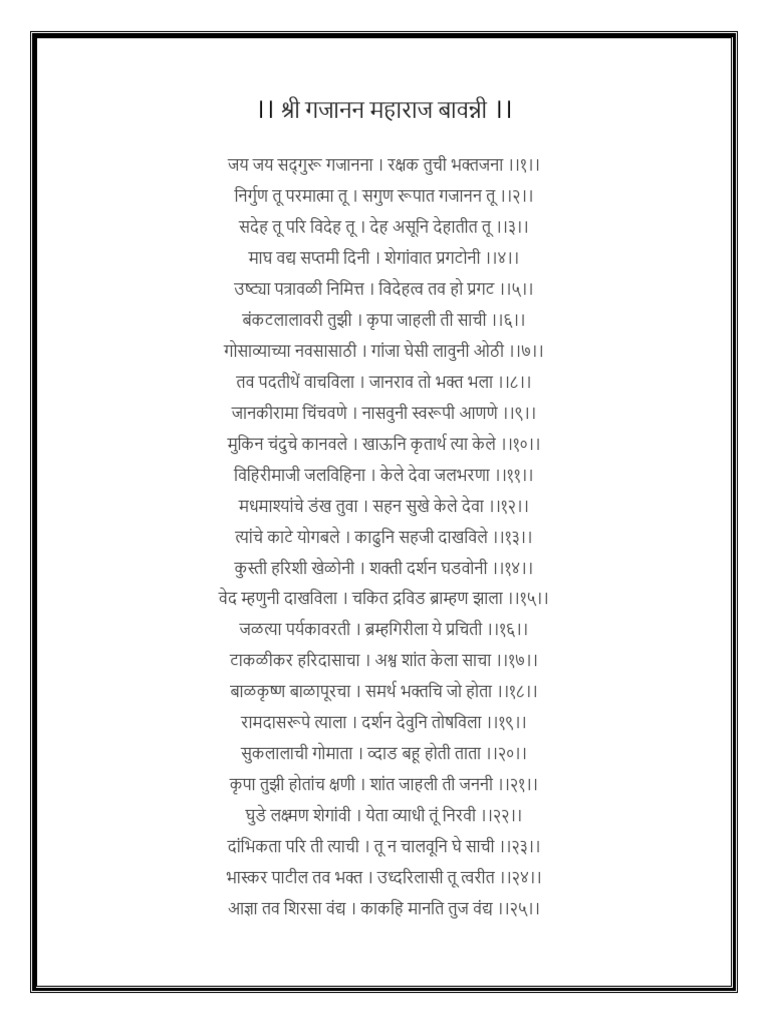 ।। श्री गजानन महाराज बावन्नी ।।
जय जय सद्‌गुरू गजानना । रक्षक तुची भक्तजना ।।१।।
निर्गुण तू परमात्मा तू । सगुण रूपात गजानन तू ।।२।।
सदेह तू परि विदेह तू । देह असूनि देहातीत तू ।।३।।
माघ वद्य सप्तमी दिनी । शेगांवात प्रगटोनी ।।४।।
उष्ट्या पत्रावळी निमित्त । विदेहत्व तव हो प्रगट ।।५।।
बंकटलालावरी तुझी । कृपा जाहली ती साची ।।६।।
गोसाव्याच्या नवसासाठी । गांजा घेसी लावुनी ओठी ।।७।।
तव पदतीर्थे वाचविला । जानराव तो भक्त भला ।।८।।
जानकीरामा चिंचवणे । नासवुनी स्वरूपी आणणे ।।९।।
मुकिन चंदुचे कानवले । खाऊनि कृतार्थ त्या केले ।।१०।।
विहिरीमाजी जलविहिना । केले देवा जलभरणा ।।११।।
मधमाश्यांचे डंख तुवा । सहन सुखे केले देवा ।।१२।।
त्यांचे काटे योगबले । काढुनि सहजी दाखविले ।।१३।।
कुस्ती हरिशी खेळोनी । शक्ती दर्शन घडवोनी ।।१४।।
वेद म्हणुनी दाखविला । चकित द्रविड ब्राम्हण झाला ।।१५।।
जळत्या पर्यकावरती । ब्रम्हगिरीला ये प्रचिती ।।१६।।
टाकळीकर हरिदासाचा । अश्व शांत केला साचा ।।१७।।
बाळकृष्ण बाळापूरचा । समर्थ भक्तचि जो होता ।।१८।।
रामदासरूपे त्याला । दर्शन देवुनि तोषविला ।।१९।।
सुकलालाची गोमाता । व्दाड बहू होती ताता ।।२०।।
कृपा तुझी होतांच क्षणी । शांत जाहली ती जननी ।।२१।।
घुडे लक्ष्मण शेगांवी । येता व्याधी तूं निरवी ।।२२।।
दांभिकता परि ती त्याची । तू न चालवूनि घे साची ।।२३।।
भास्कर पाटील तव भक्त । उध्दरिलासी तू त्वरीत ।।२४।।
आज्ञा तव शिरसा वंद्य । काकहि मानति तुज वंद्य ।।२५।।